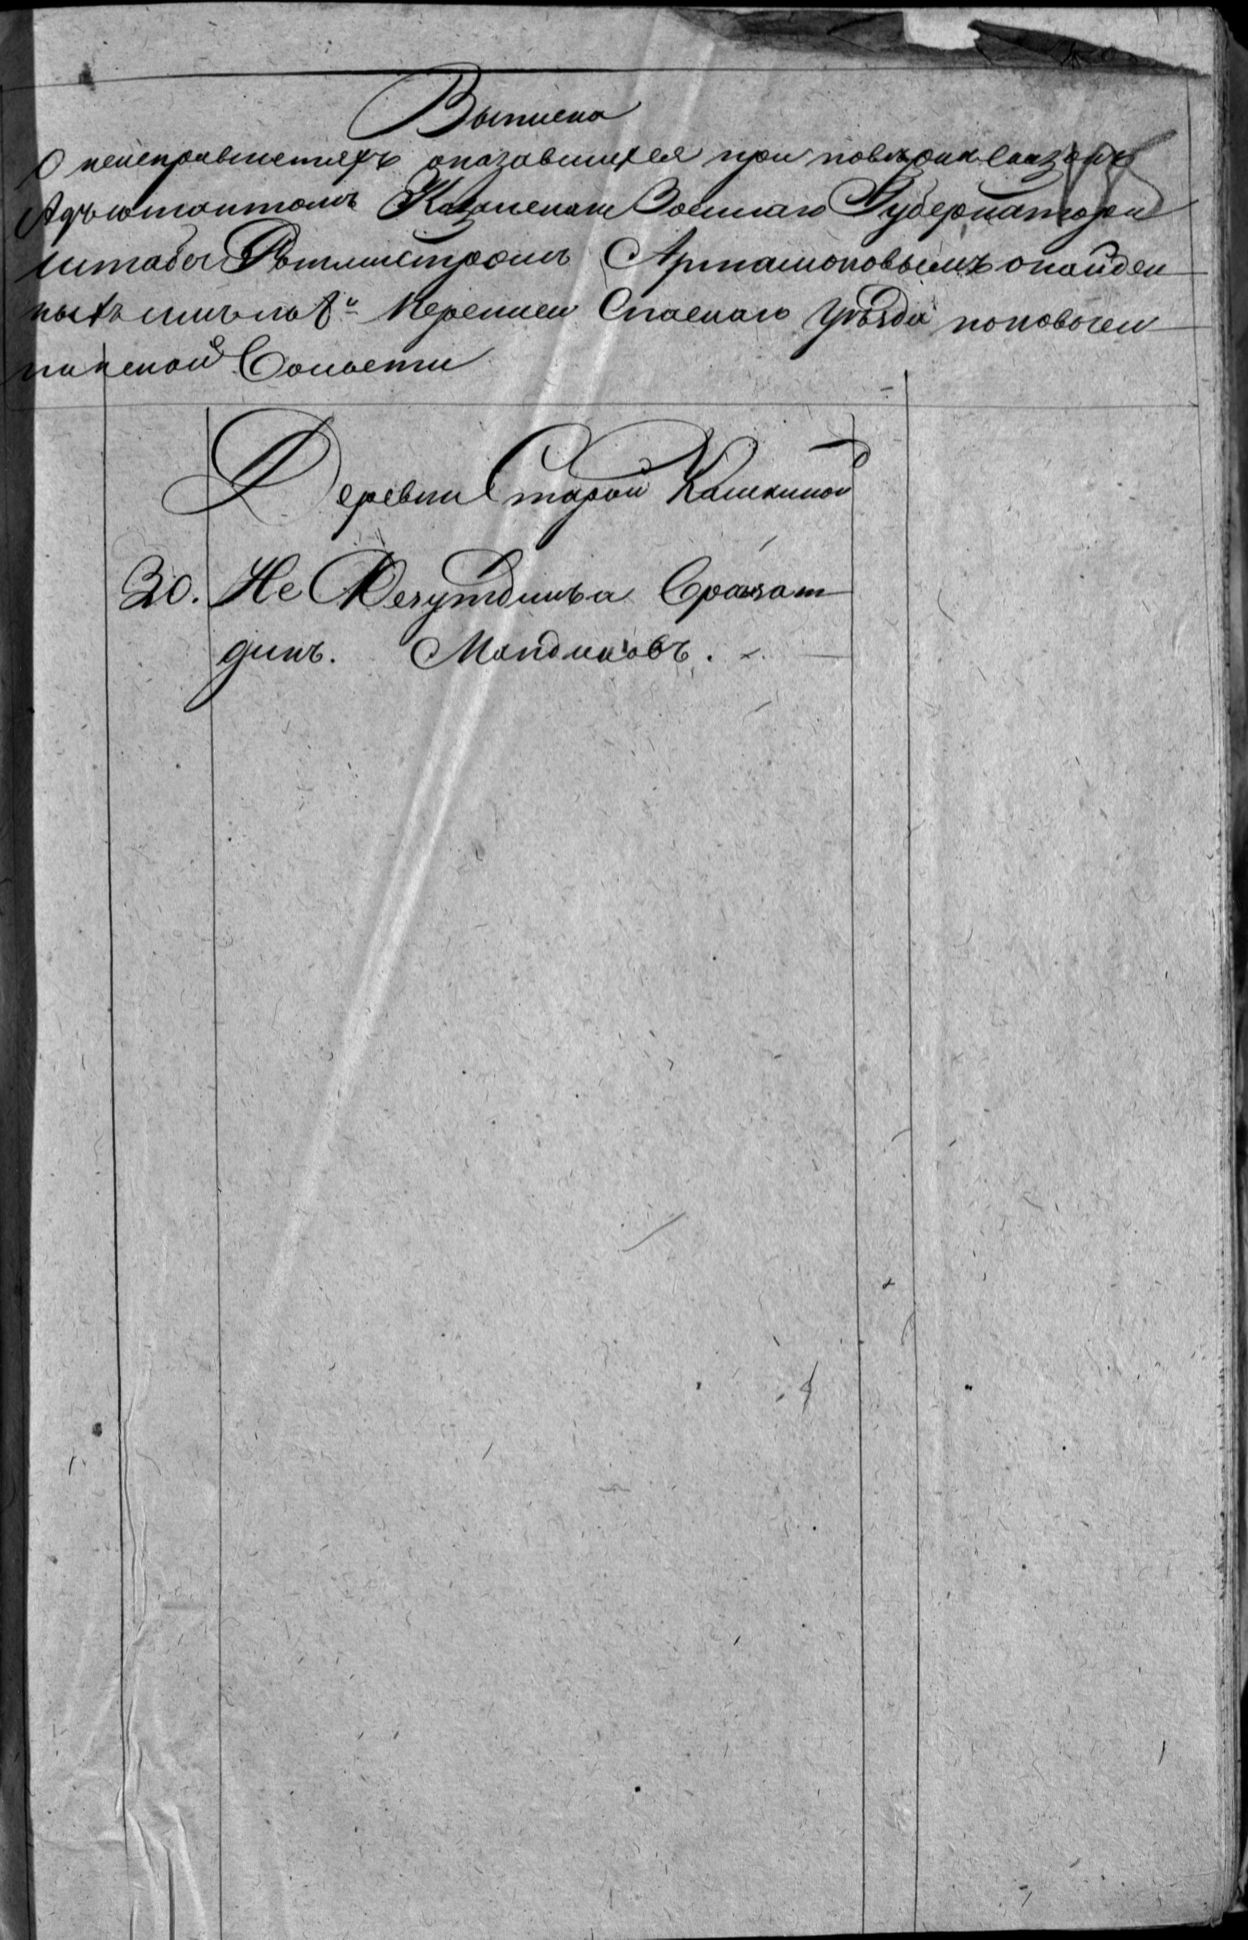 Выписка
О неисправностяхъ оказавшихся при повѣрки сказокъ
Адъютантомъ Казанскаго Военнаго Губернатора
штабъ Ротмистромъ Артамоновымъ о найден
ныхъ имъ по 8й Перепеси Спаскаго Уѣзда по новосел
Волости
Деревни Старой Камкиной
30. Не
динъ.